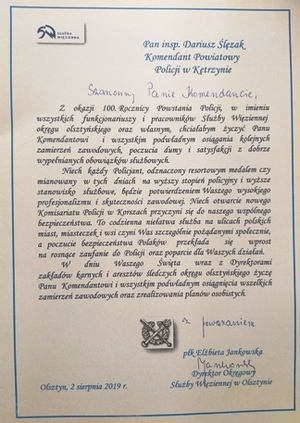 SŁUŻBA
WIĘZIENNA
Pan insp. Dariusz Ślęzak
Komendant Powiatowy
Policji w Kętrzynie
Szanowny Panie Komendancie,
Z okazji 100. Rocznicy Powstania Policji, w imieniu
wszystkich funkcjonariuszy i pracowników Służby Więziennej
okręgu olsztyńskiego oraz własnym, chciałabym życzyć Panu
Komendantowi i wszystkim podwładnym osiągania kolejnych
zamierzeń zawodowych, poczucia dumy i satysfakcji z dobrze
wypełnianych obowiązków służbowych.
Niech każdy Policjant, odznaczony resortowym medalem czy
mianowany w tych dniach na wyższy stopień policyjny i wyższe
stanowisko służbowe, będzie potwierdzeniem Waszego wysokiego
profesjonalizmu i skuteczności zawodowej. Niech otwarcie nowego
Komisariatu Policji w Korszach przyczyni się do naszego wspólnego
bezpieczeństwa. To codzienna nielatwa służba na ulicach polskich
miast, miasteczek i wsi czyni Was szczególnie pożądanymi społecznie,
a poczucie bezpieczeństwa Polaków przekłada się wprost
na rosnące zaufanie do Policji oraz poparcie dla Waszych działań.
W dniu Waszego Święta wraz z Dyrektorami
zakładów karnych i aresztów śledczych okręgu olsztyńskiego życzę
Panu Komendantowi i wszystkim podwładnym osiągnięcia wszelkich
zamierzeń zawodowych oraz zrealizowania planów osobistych.
z poważaniem
płk Elżbieta Jankowska
Jankowska
Dyrektor Okręgowy
Olsztyn, 2 sierpnia 2019 r. Służby Więziennej w Olsztynie